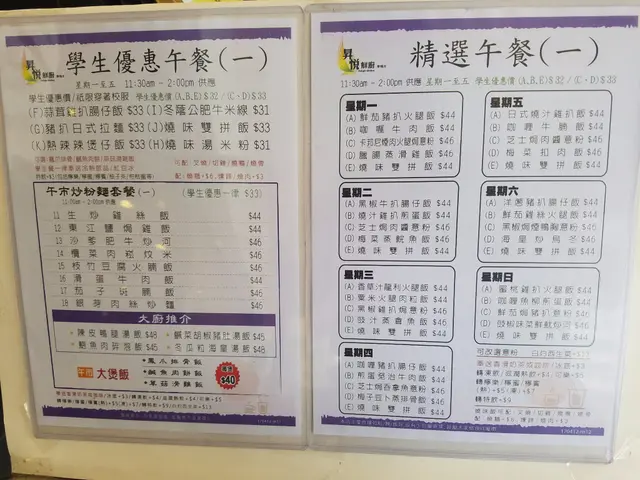 昇悅鮮廚
學生優惠午餐(一)
星期一至五 11:30am - 2:00pm 供應
學生優惠價/紙限穿著校服 學生優惠價(A,B,E)$32/(C-D)$33
(F)蒜茸雞扒腸仔飯 $33 (I)冬蔭公肥牛米線 $31
(G)豬扒日式拉麵 $33 (J)燒味雙拼飯 $33
(K)熱辣辣煲仔飯 $33 (H)燒味湯米粉 $31
午市炒粉麵套餐(一) (學生優惠一律 $33)
11:00am - 2:00pm 供應
11 生炒雞絲飯 $44
12 東江鹽焗雞飯 $44
13 沙爹肥牛炒河 $46
14 欖菜肉崧炆米 $46
15 枝竹豆腐火腩飯 $46
16 滑蛋牛肉飯 $44
17 茄子斑腩飯 $46
18 銀芽肉絲炒麵 $46
大廚推介
陳皮鴨腿湯飯 $48 鹹菜胡椒豬肚湯飯 $45
冬瓜粒海皇湯飯 $48
午市 大煲飯
鳳爪排骨飯
鹹魚肉餅飯
草菇滑雞飯
$40
昇悅鮮廚
精選午餐(一)
11:30am - 2:00pm 供應 星期一至五 學生優惠價(A,B,E)$32/(C-D)$33
星期一
(A) 鮮茄豬扒火腿飯 $44
(B) 咖喱牛肉飯 $44
(C) 卡菈尼煙肉火腿焗意粉 $46
(D) 臘腸蒸滑雞飯 $46
(E) 燒味雙拼飯 $46
星期二
(A) 黑椒牛扒腸仔飯 $44
(B) 燒汁雞扒煎蛋飯 $44
(C) 芝士焗肉醬意粉 $46
(D) 梅菜蒸鯇魚飯 $46
(E) 燒味雙拼飯 $46
星期三
(A) 香草汁龍利火腿飯 $44
(B) 粟米火腿肉粒飯 $44
(C) 黑椒雞扒焗意粉 $46
(D) 豉汁蒸倉魚飯 $46
(E) 燒味雙拼飯 $46
星期四
(A) 咖喱豬扒腸仔飯 $44
(B) 煎蛋免治牛肉飯 $44
(C) 芝士焗吞拿魚意粉 $46
(D) 梅子豆卜蒸排骨飯 $46
(E) 燒味雙拼飯 $46
星期五
(A) 日式燒汁雞扒飯 $44
(B) 咖喱牛腩飯 $44
(C) 芝士焗肉醬意粉 $46
(D) 梅菜扣肉飯 $46
(E) 燒味雙拼飯 $46
星期六
(A) 洋蔥豬扒腸仔飯 $44
(B) 鮮茄雞絲火腿飯 $44
(C) 黑椒焗煙鴨胸意粉 $46
(D) 海皇炒烏冬 $46
(E) 燒味雙拼飯 $46
星期日
(A) 蜜桃雞扒火腿飯 $44
(B) 咖喱魚柳煎蛋飯 $44
(C) 鮮茄焗豬扒意粉 $46
(E) 燒味雙拼飯 $46